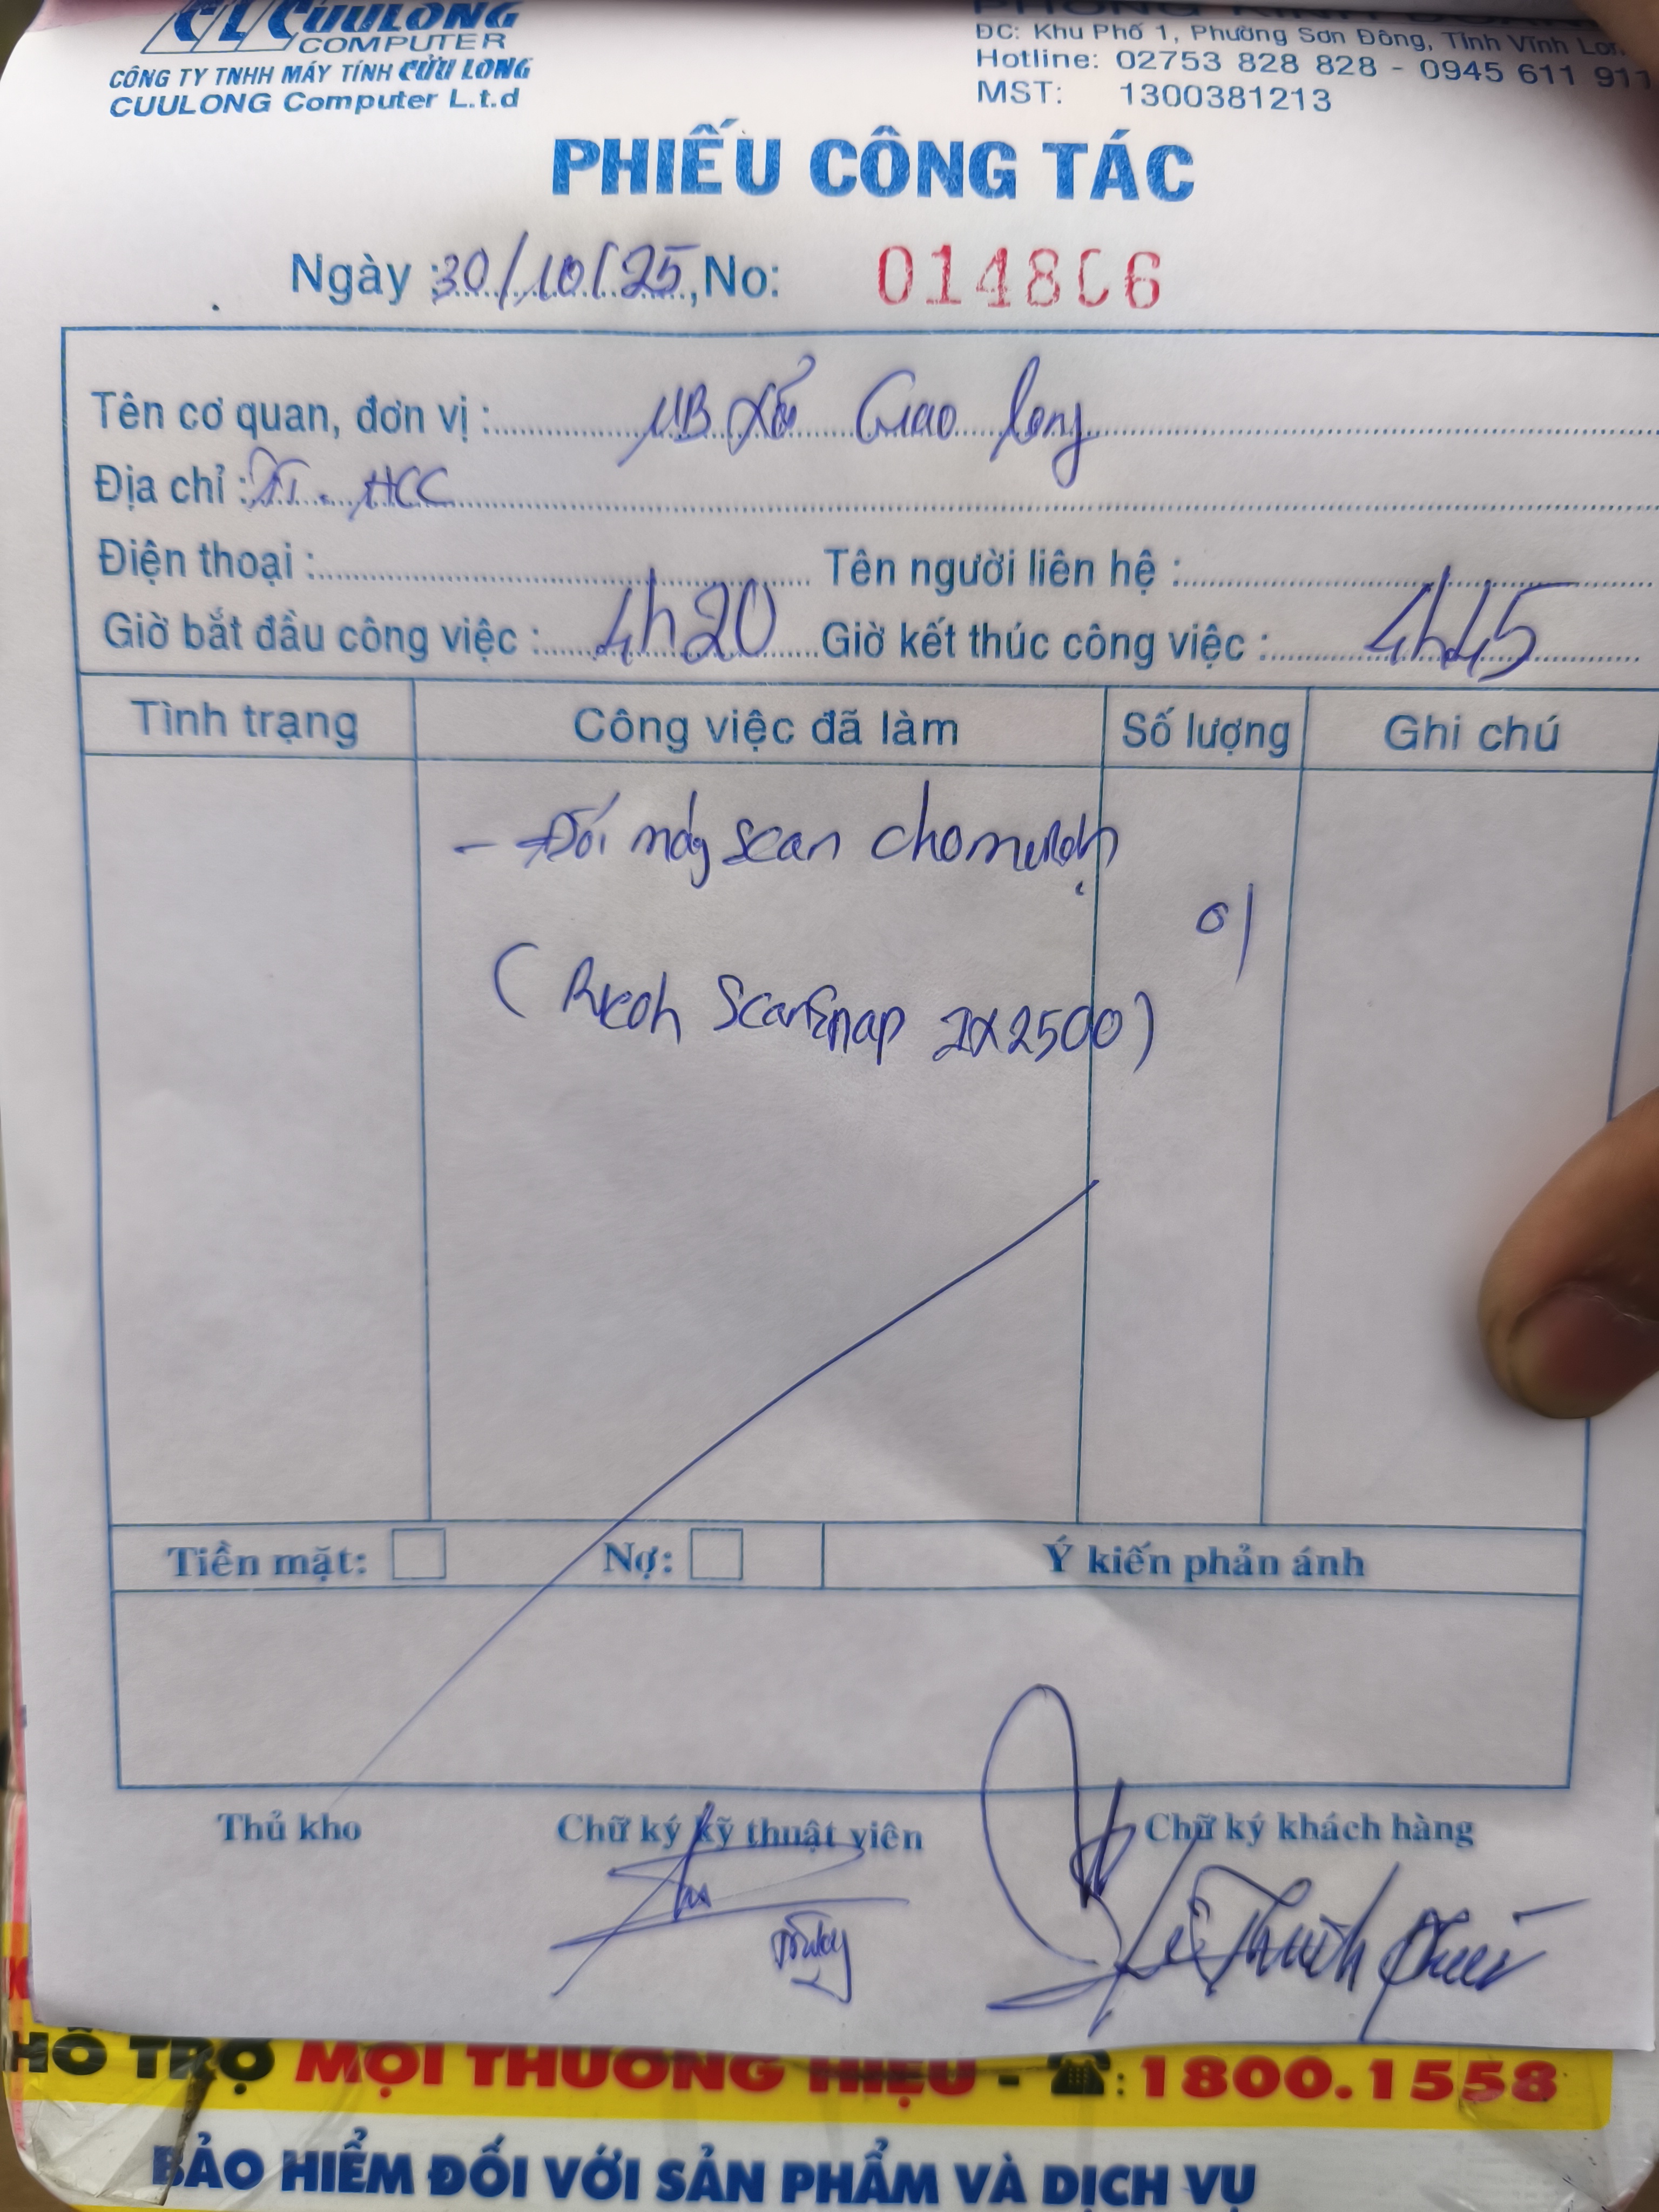 CL CUULONG
COMPUTER
CÔNG TY TNHH MÁY TÍNH CỬU LONG
CUULONG Computer L.t.d
ĐC: Khu Phố 1, Phường Sơn Đông, Tỉnh Vĩnh Lon
Hotline: 02753 828 828 - 0945 611 911
MST: 1300381213
PHIẾU CÔNG TÁC
Ngày : 30/10/25, No: 014806
Tên cơ quan, đơn vị : UB Xã Giao Long
Địa chỉ : TT. HCC
Điện thoại : Tên người liên hệ :
Giờ bắt đầu công việc : 4h20 Giờ kết thúc công việc : 4h45
Tình trạng Công việc đã làm Số lượng Ghi chú
- Đổi máy scan cho mượn
01
(Ricoh ScanSnap iX2500)
Tiền mặt: Nợ: Ý kiến phản ánh
Thủ kho Chữ ký kỹ thuật viên Chữ ký khách hàng
HỖ TRỢ MỌI THƯƠNG HIỆU - ☎: 1800.1558
BẢO HIỂM ĐỐI VỚI SẢN PHẨM VÀ DỊCH VỤ